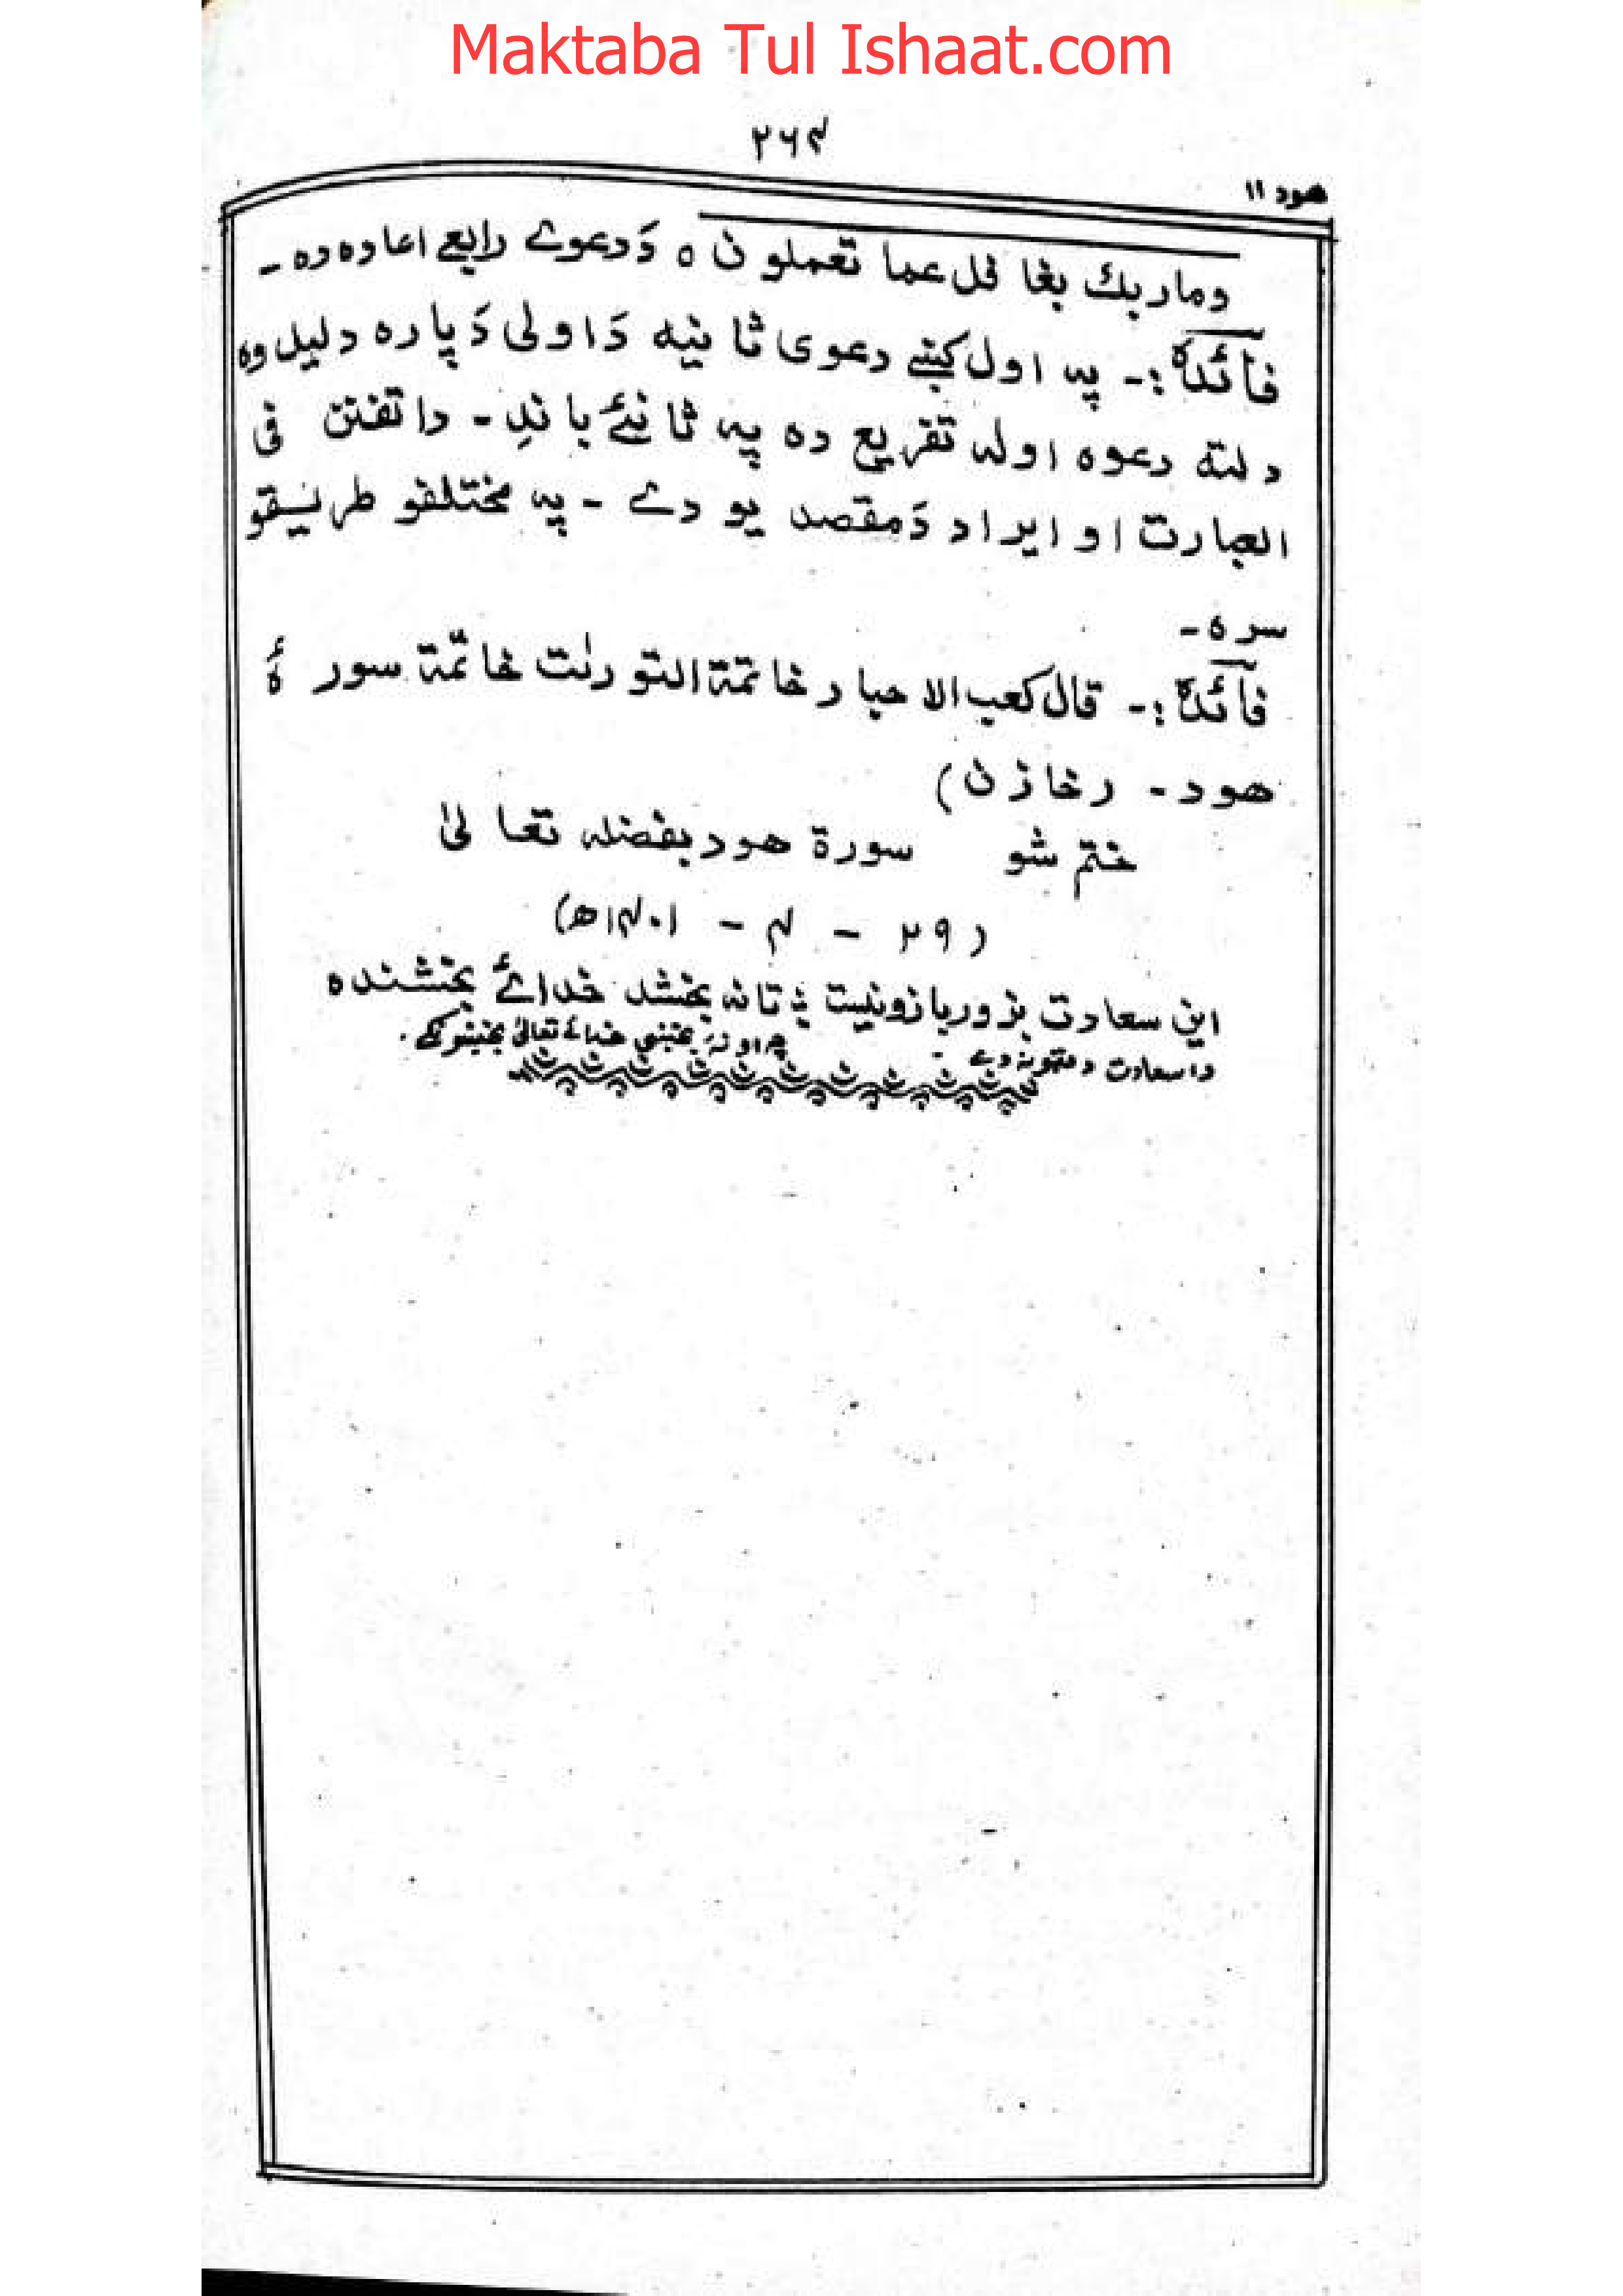 Maktaba Tul Ishaat.com
۲۶۴
هود ۱۱
وما ربك بغافل عما تعملون ه دَ دعوے رابعے اعاده ده -
فائدہ :- په اول کښے دعوی ثانیه دَ اولی دَ پاره دلیل وه
دلته دعوه اوله تفریع ده په ثانئے باندِ - دا تفنن فی
العبارت او ایراد دَ مقصد یو دے - په مختلفو طریقو
سره -
فائدہ :- قال کعب الاحبار خاتمة التورٮٰت خاتمة سورۃُ
هود - (خازن)
ختم شو سورة هود بفضله تعالیٰ
(۲۹ - ۴ - ۱۴۰۱ھ)
این سعادت بزور بازو نیست ؛ تا نه بخشد خدائے بخشنده
دا سعادت د متو په دے - چه او نه بخښی خدائے تعالیٰ بخښونکے .